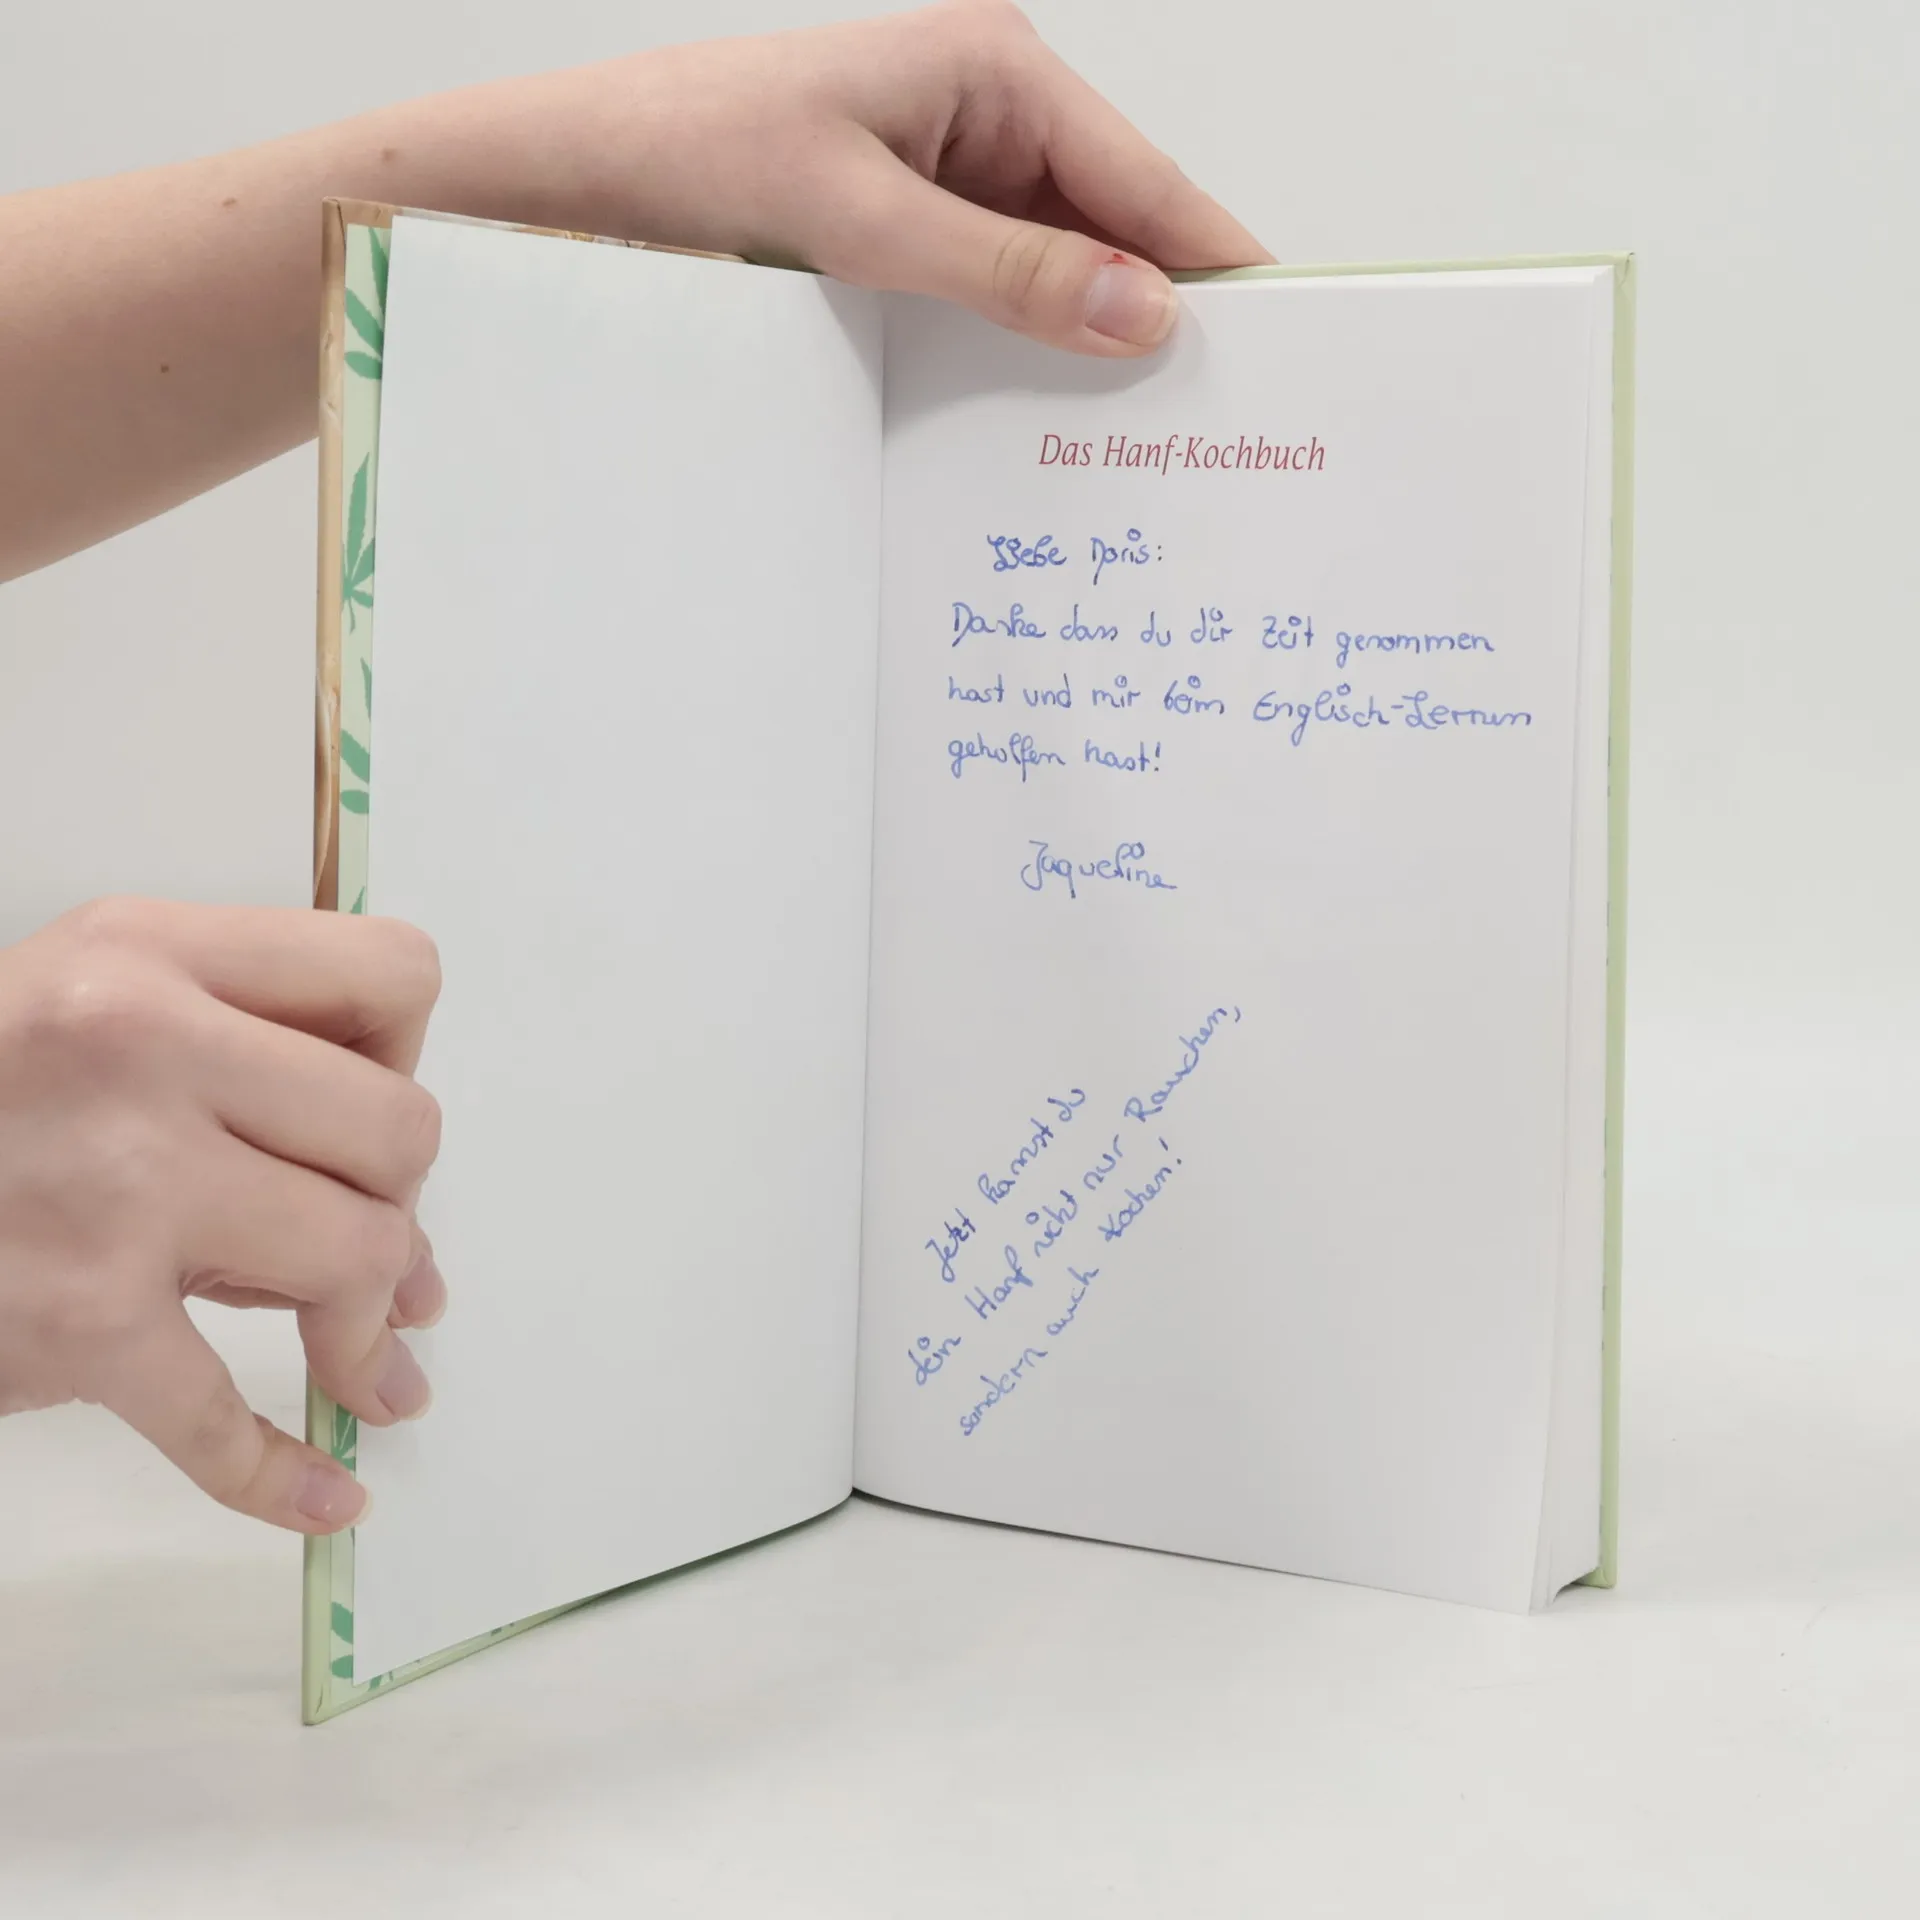 Das Hanf-Kochbuch
Liebe Doris:
Danke dass du dir Zeit genommen
hast und mir beim Englisch-Lernen
geholfen hast!
Jaqueline
Jetzt kannst du
dein Hanf nicht nur Rauchen,
sondern auch Kochen!